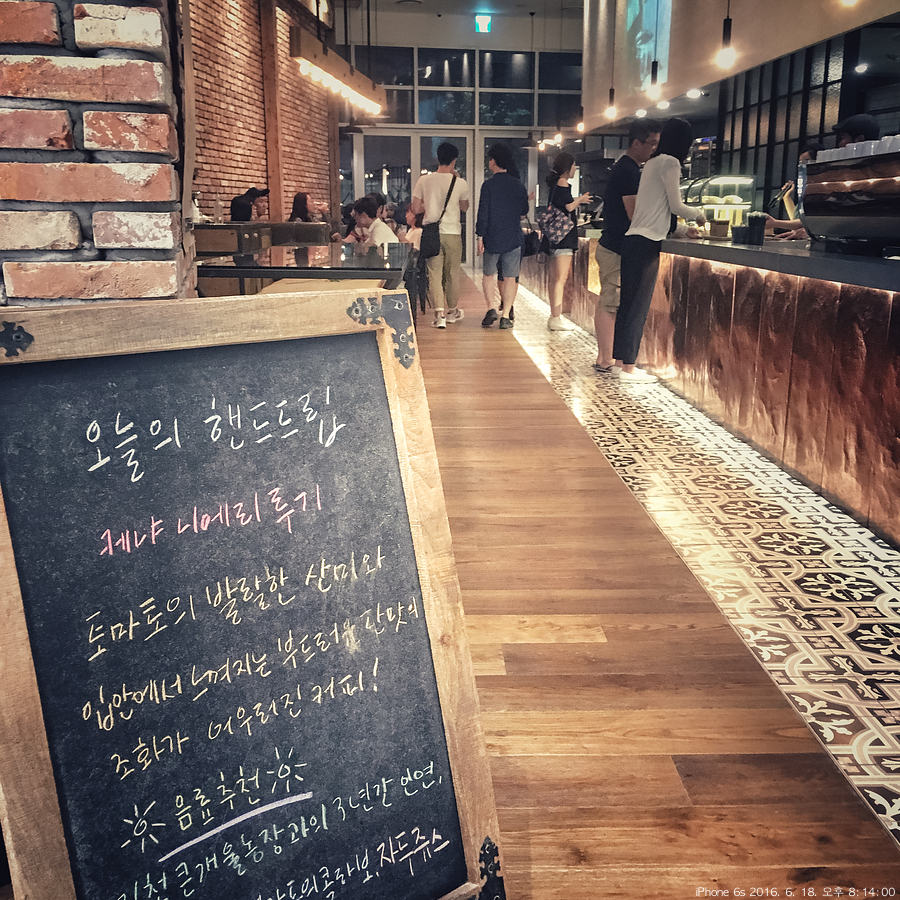 오늘의 핸드드립
케냐 니에리 투기
토마토의 발랄한 산미와
입안에서 느껴지는 부드러운 단맛의
조화가 어우러진 커피!
음료 추천
김천 큰개울농장과의 3년간 인연,
콜라보, 자두쥬스
iPhone 6s 2016. 6. 18. 오후 8:14:00